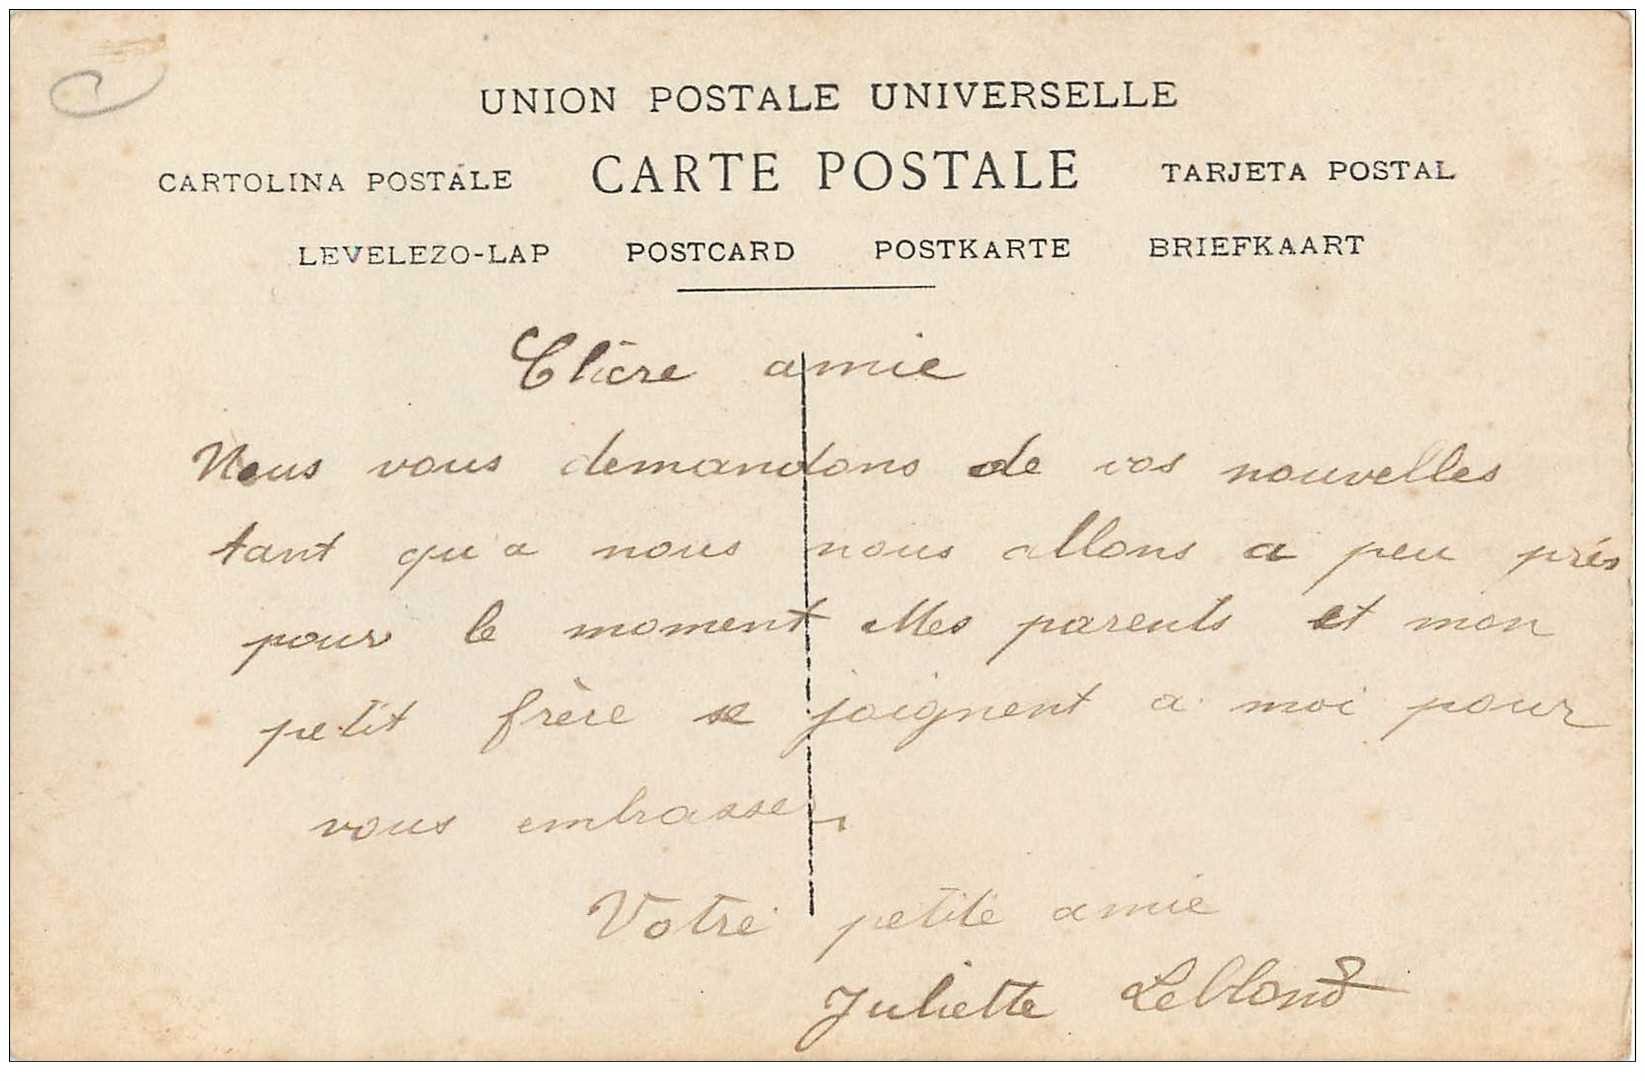 UNION POSTALE UNIVERSELLE
CARTOLINA POSTALE CARTE POSTALE TARJETA POSTAL
LEVELEZO-LAP POSTCARD POSTKARTE BRIEFKAART
Chère amie
Nous vous demandons de vos nouvelles
tant qu'a nous nous allons a peu près
pour le moment Mes parents et mon
petit frère se joignent a moi pour
vous embrasser.
Votre petite amie
Juliette Leblond